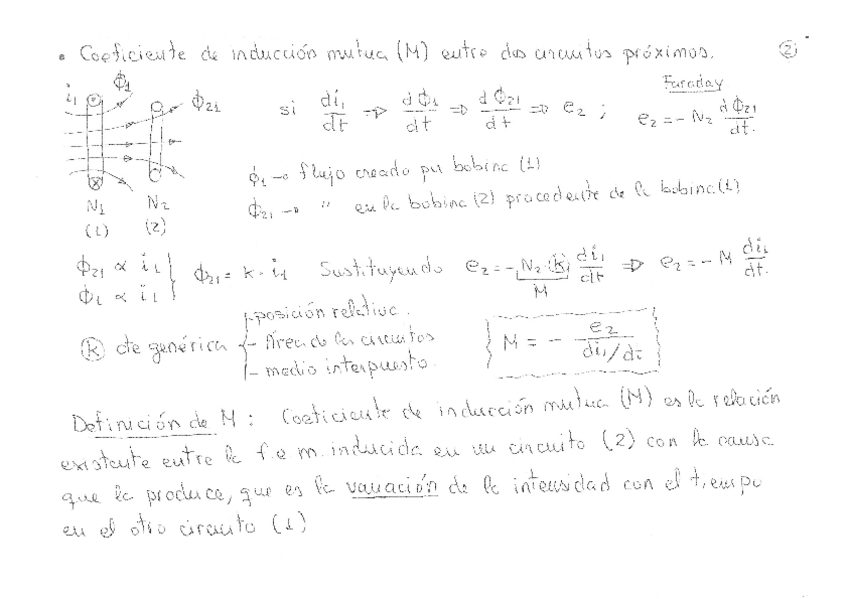 • Coeficiente de inducción mutua (M) entre dos circuitos próximos. ②
i₁ ϕ₁ ϕ₂₁
si di₁/dt → dϕ₁/dt ⇒ dϕ₂₁/dt ⇒ e₂ ;
Faraday
e₂ = - N₂ dϕ₂₁/dt.
N₁ N₂
(1) (2)
ϕ₁ → flujo creado por bobina (1)
ϕ₂₁ → " en la bobina (2) procedente de la bobina (1)
ϕ₂₁ ∝ i₁
ϕ₁ ∝ i₁
ϕ₂₁ = k · i₁ Sustituyendo e₂ = - N₂·(k) di₁/dt ⇒ e₂ = - M di₁/dt.
M
ⓚ cte genérica
- posición relativa.
- Área de los circuitos
- medio interpuesto.
M = - e₂ / di₁/dt
Definición de M : Coeficiente de inducción mutua (M) es la relación
existente entre la f.e.m. inducida en un circuito (2) con la causa
que la produce, que es la variación de la intensidad con el tiempo
en el otro circuito (1)